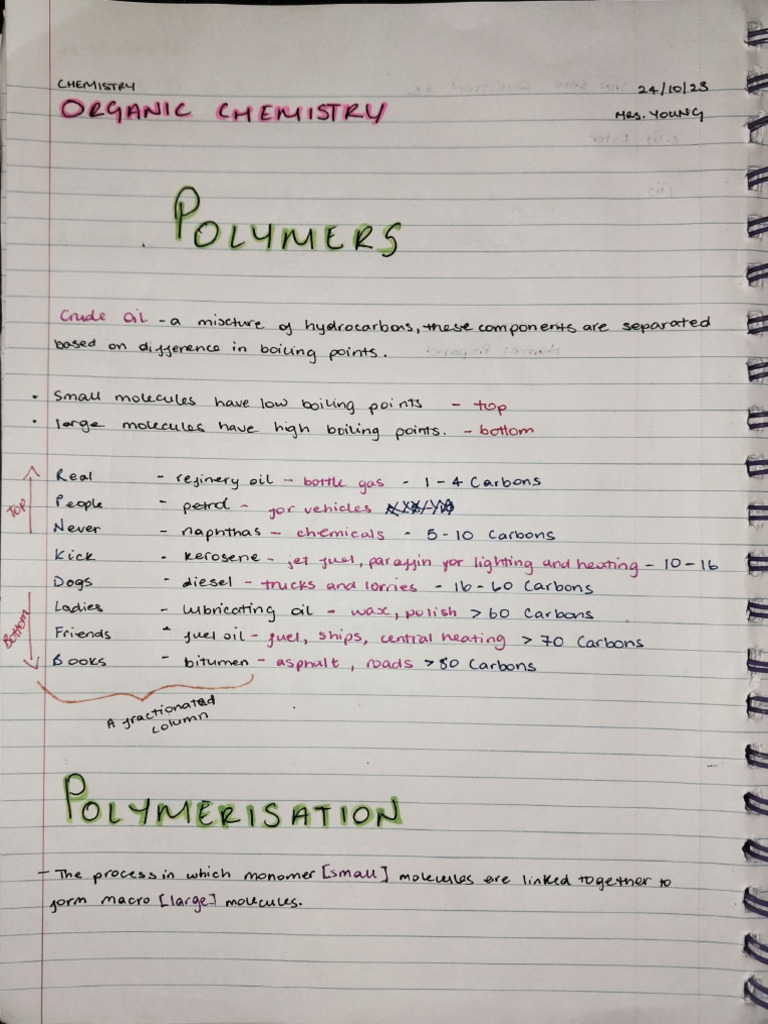 CHEMISTRY
24/10/23
ORGANIC CHEMISTRY
MRS. YOUNG
POLYMERS
Crude oil - a mixture of hydrocarbons, these components are separated
based on difference in boiling points.
• Small molecules have low boiling points - top
• large molecules have high boiling points. - bottom
TOP
Real - refinery oil - bottle gas - 1-4 Carbons
People - petrol - for vehicles
Never - naphthas - chemicals - 5-10 Carbons
Kick - kerosene - jet fuel, paraffin for lighting and heating - 10-16
Dogs - diesel - trucks and lorries - 16-60 Carbons
Bottom
Ladies - lubricating oil - wax, polish > 60 Carbons
Friends - fuel oil - fuel, ships, central heating > 70 Carbons
Books - bitumen - asphalt, roads > 80 Carbons
A fractionated
column
POLYMERISATION
- The process in which monomer [small] molecules are linked together to
form macro [large] molecules.